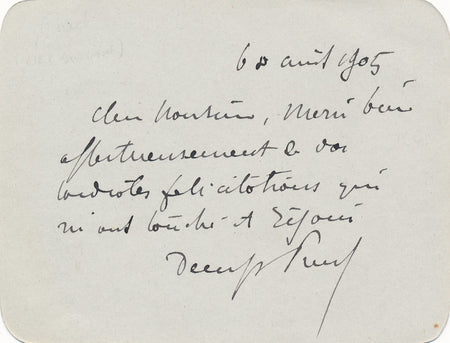 8 août 1905
Cher Monsieur, Merci bien
affectueusement de vos
cordiales felicitations qui
m'ont touché et réjoui